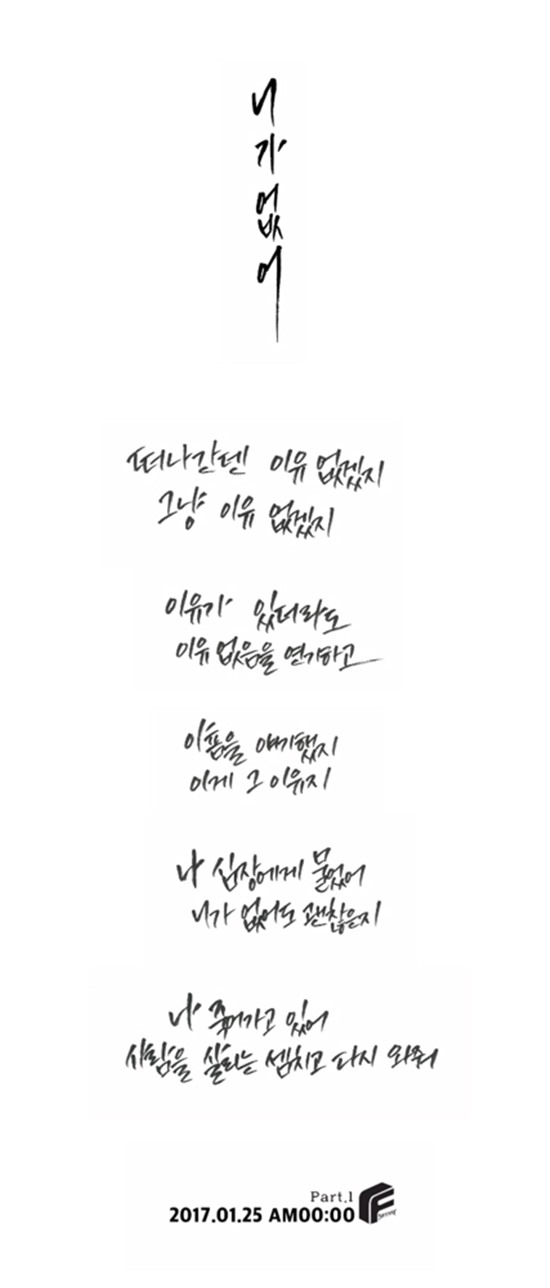 니가 없어
떠나간텐 이유 없겠지
그냥 이유 없겠지
이유가 있더라도
이유 없음을 연기하고
이픔을 얘기했지
이게 그 이유지
나 심장에게 물었어
니가 없어도 괜찮은지
나 죽어가고 있어
사람을 살리는 셈치고 다시 와줘
Part.1
2017.01.25 AM00:00